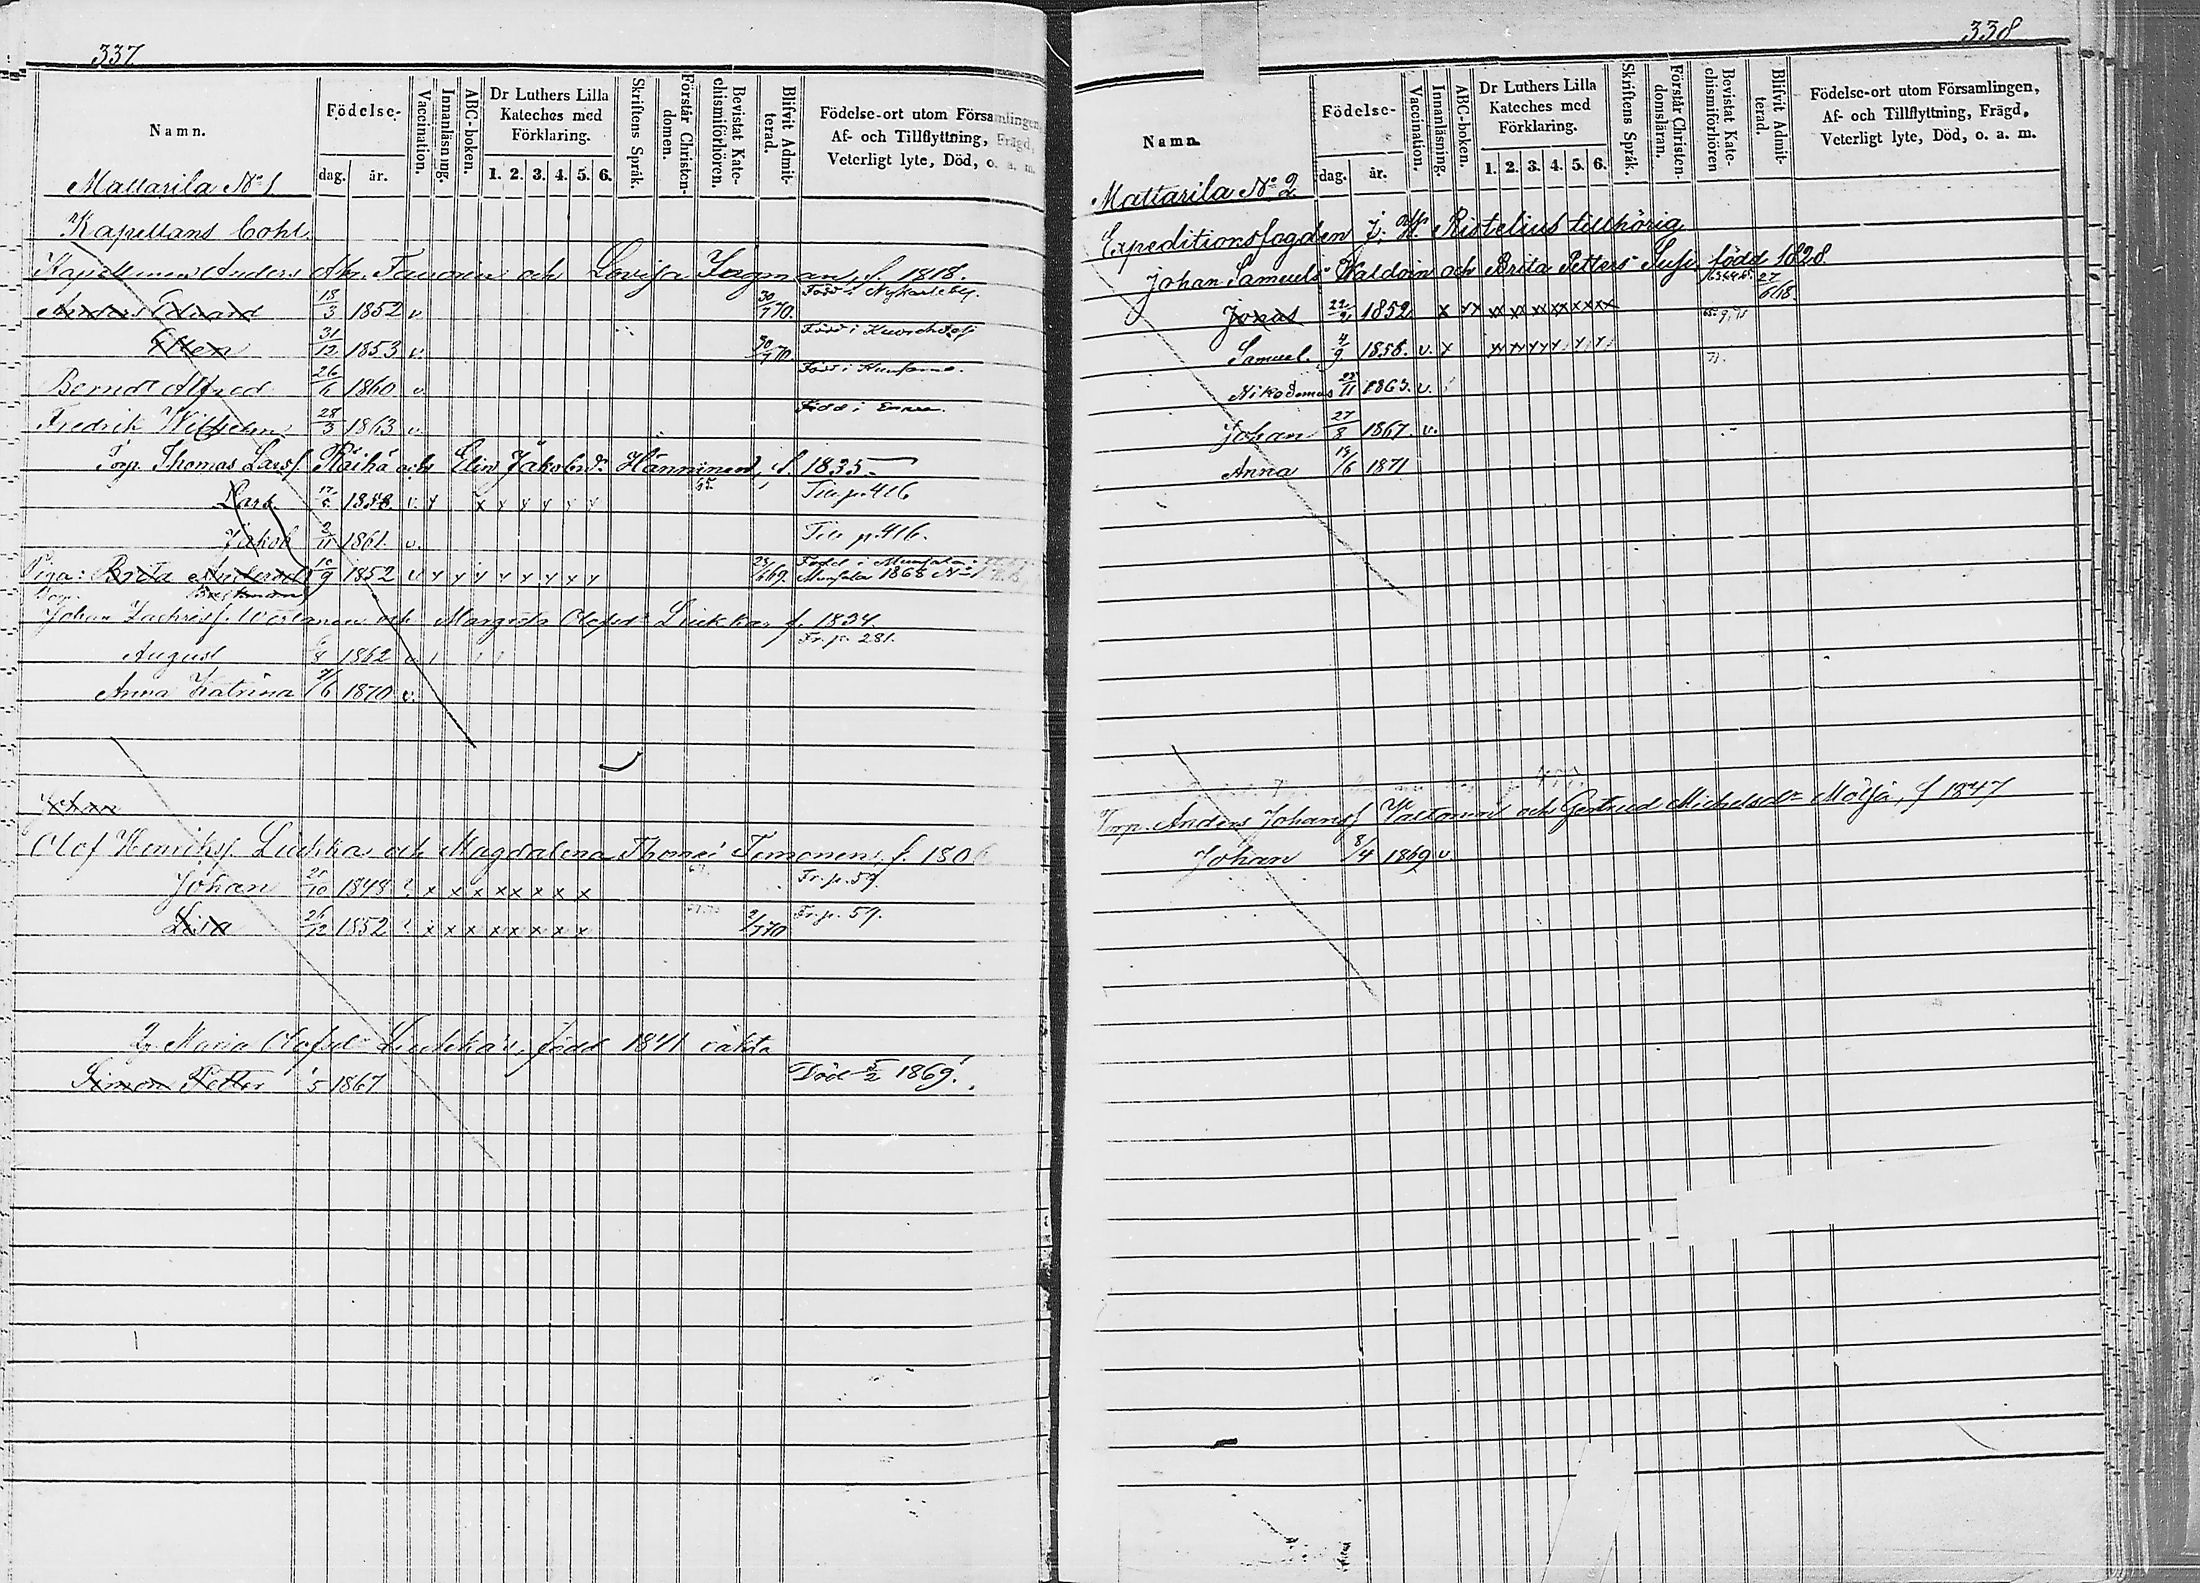 337
Namn.
Födelse-
dag. år.
Vaccination.
Innanläsning.
ABC-boken.
Dr Luthers Lilla Kateches med Förklaring.
1. 2. 3. 4. 5. 6.
Skriftens Språk.
Förstår Christen-domen.
Bevistat Kate-chismiförhören.
Blifvit Admit-terad.
Födelse-ort utom Församlingen,
Af- och Tillflyttning, Frägd,
Veterligt lyte, Död, o. a. m.
Mattarila No 1
Kapellans Bohl.
Anders och Lovisa Forsman, f. 1818.
Anders Edvard 18/3 1852 v. 30/7 70. Född i Nykarleby.
31/12 1853 v. 30/7 70.
Berndt Alfred 26/6 1860 v.
Fredrik Wilhelm 28/3 1863 v.
Torp. Thomas Larsf. Räihä och Elin Jakobsdr Hänninen, f. 1835
Lars 1858 v. Till p. 416
Jakob 2/11 1861 v. Till p. 416.
Piga: Brita Andersdr 10/9 1852 v
Johan Zachrisf. och Margeta Olofsdr Liukka f. 1834.
August 1862 v Fr. p. 281.
Anna Katrina /6 1870 v.
Johan
Olof Henriksf. Liukka och Magdalena Thomædr Timonen, f. 180
Johan /10 1848 x x x x x x x x Fr. p. 59.
Lisa 26/12 1852 x x x x x x x x 2/7 70 Fr. p. 59.
Maria Olofsdr Liukka, född 1841 oäkta
Simon Petter 1867 Död 5/2 1869.
338
Namn.
Födelse-
dag. år.
Vaccination.
Innanläsning.
ABC-boken.
Dr Luthers Lilla Kateches med Förklaring.
1. 2. 3. 4. 5. 6.
Skriftens Språk.
Förstår Christen-domsläran.
Bevistat Kate-chismiförhören
Blifvit Admit-terad.
Födelse-ort utom Församlingen,
Af- och Tillflyttning, Frägd,
Veterligt lyte, Död, o. a. m.
Mattarila No 2
Expeditionsfogden J. W. Ristelius tillhörig
Johan Samuels och Brita Petters född 1828
Jonas 22/2 1852 27/6 68.
Samuel. 4/9 1858. v. x
Nikodemus /11 1863. v.
Johan 27/8 1867. v.
Anna 19/6 1871
Torp. Anders Johansf och Gertrud Michelsdr Mölsä, f 1847
Johan 8/4 1869 v